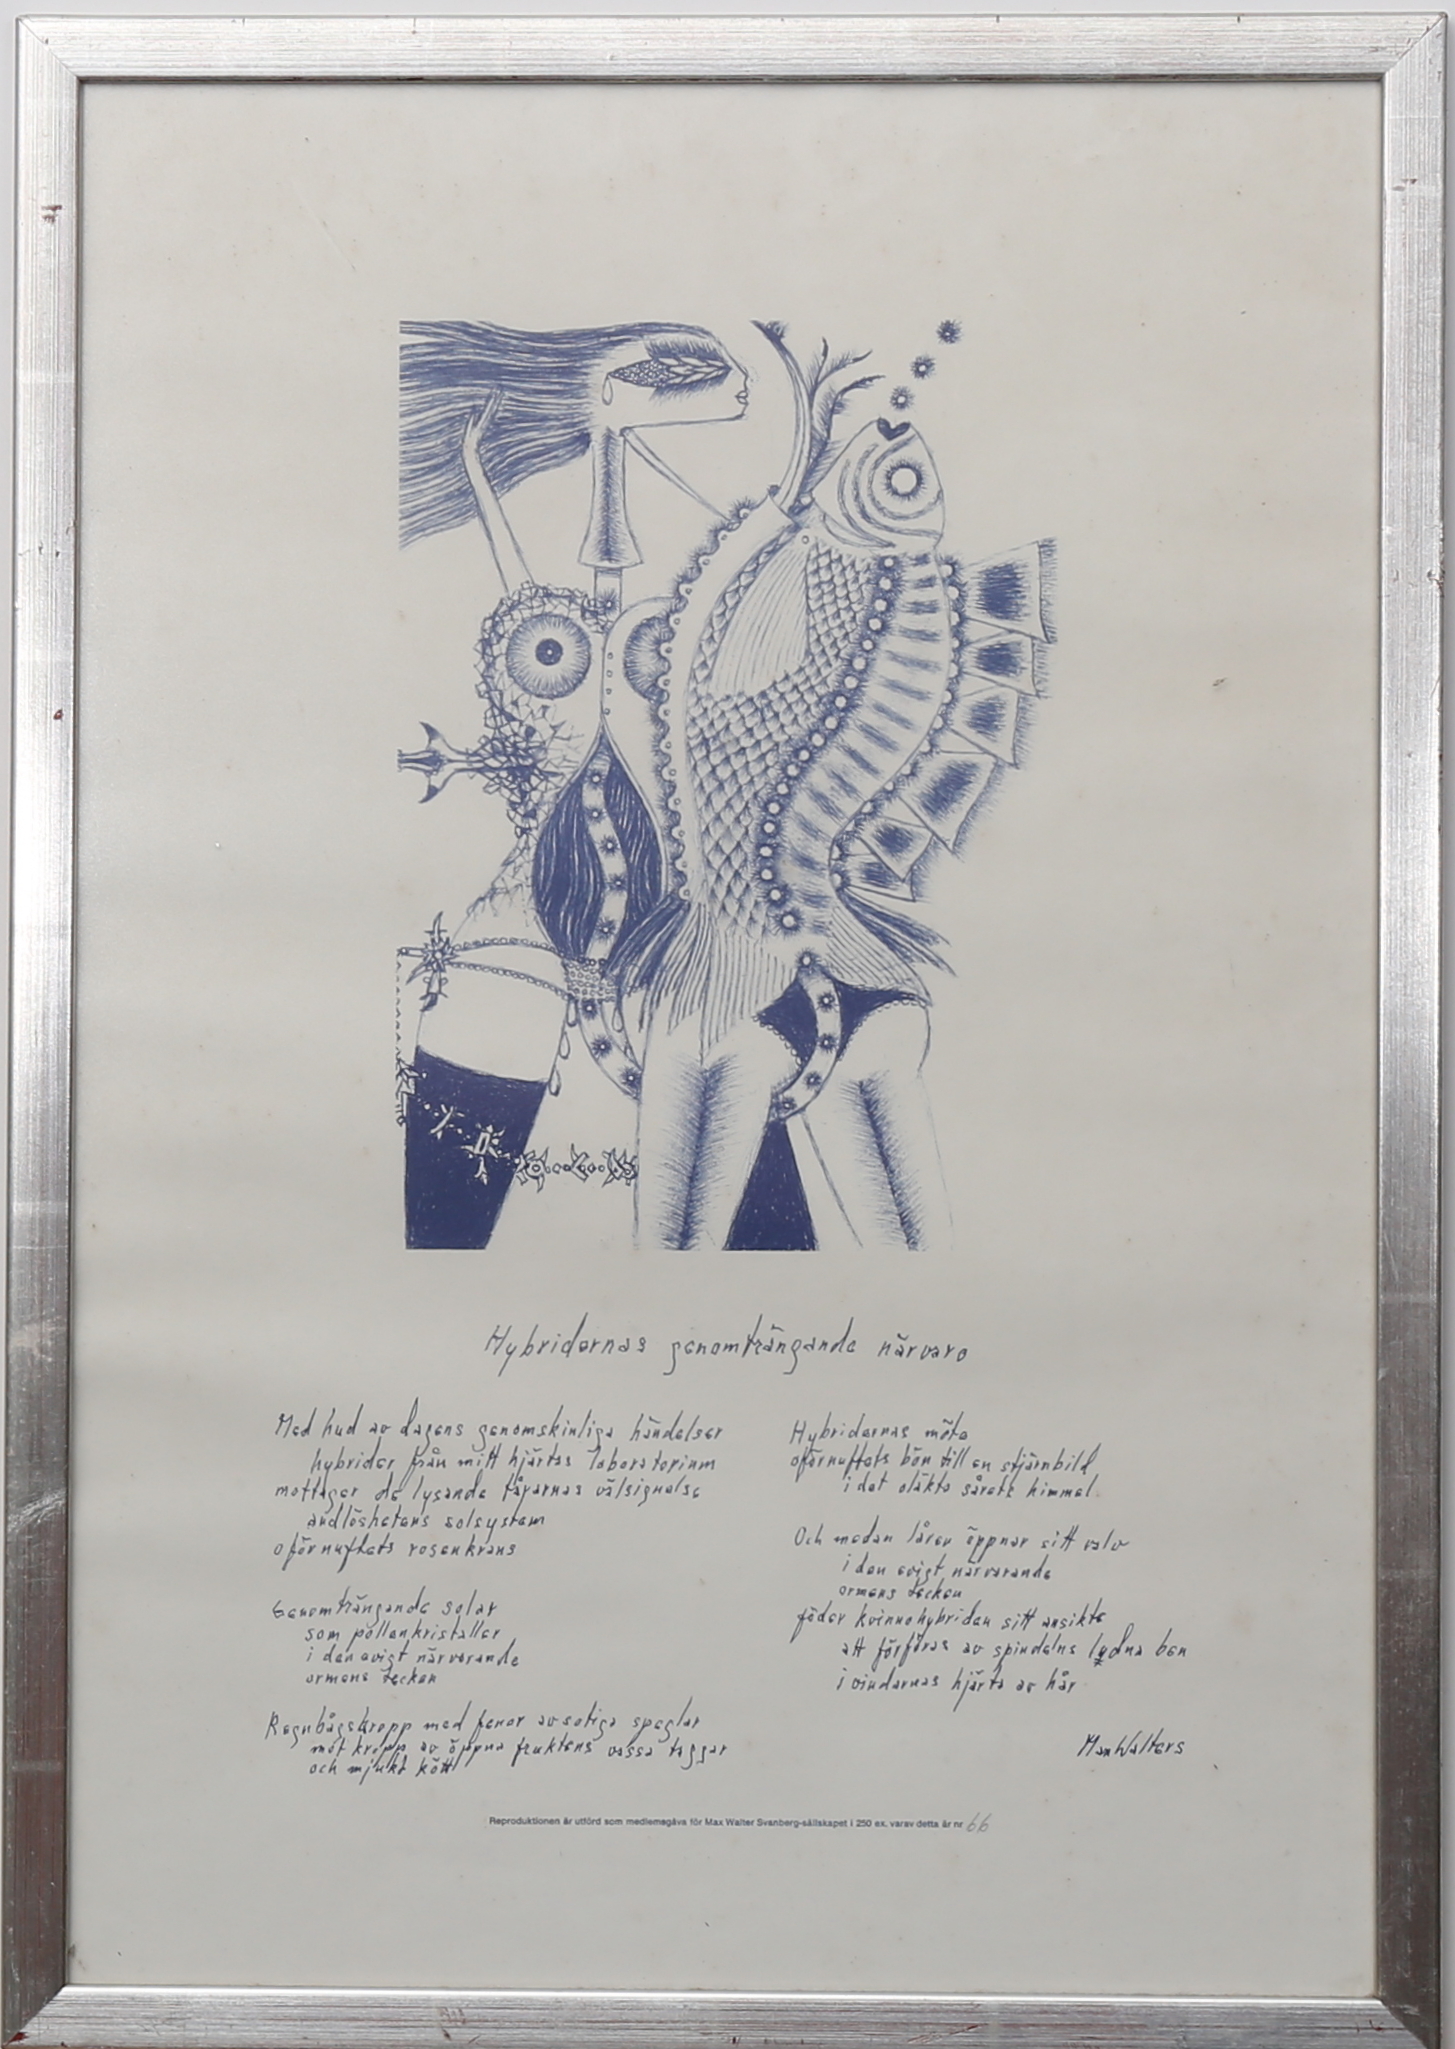 Hybridernas genomträngande närvaro
Med hud av dagens genomskinliga händelser
hybrider från mitt hjärtas laboratorium
mottager de lysande tårarnas välsignelse
andlöshetens solsystem
oförnuftets rosenkrans
Genomträngande solar
som pollenkristaller
i den evigt närvarande
ormens tecken
Regnbågskropp med fenor av sotiga speglar
mot kropp av öppna fruktens vassa taggar
och mjukt kött
Hybridernas möte
oförnuftets bön till en stjärnbild
i det oläkta sårets himmel.
Och medan låren öppnar sitt valv
i den evigt närvarande
ormens tecken
föder kvinnohybriden sitt ansikte
att förföras av spindelns lydna ben
i vindarnas hjärta av hår
Max Walters
Reproduktionen är utförd som medlemsgåva för Max Walter Svanberg-sällskapet i 250 ex. varav detta är nr 66